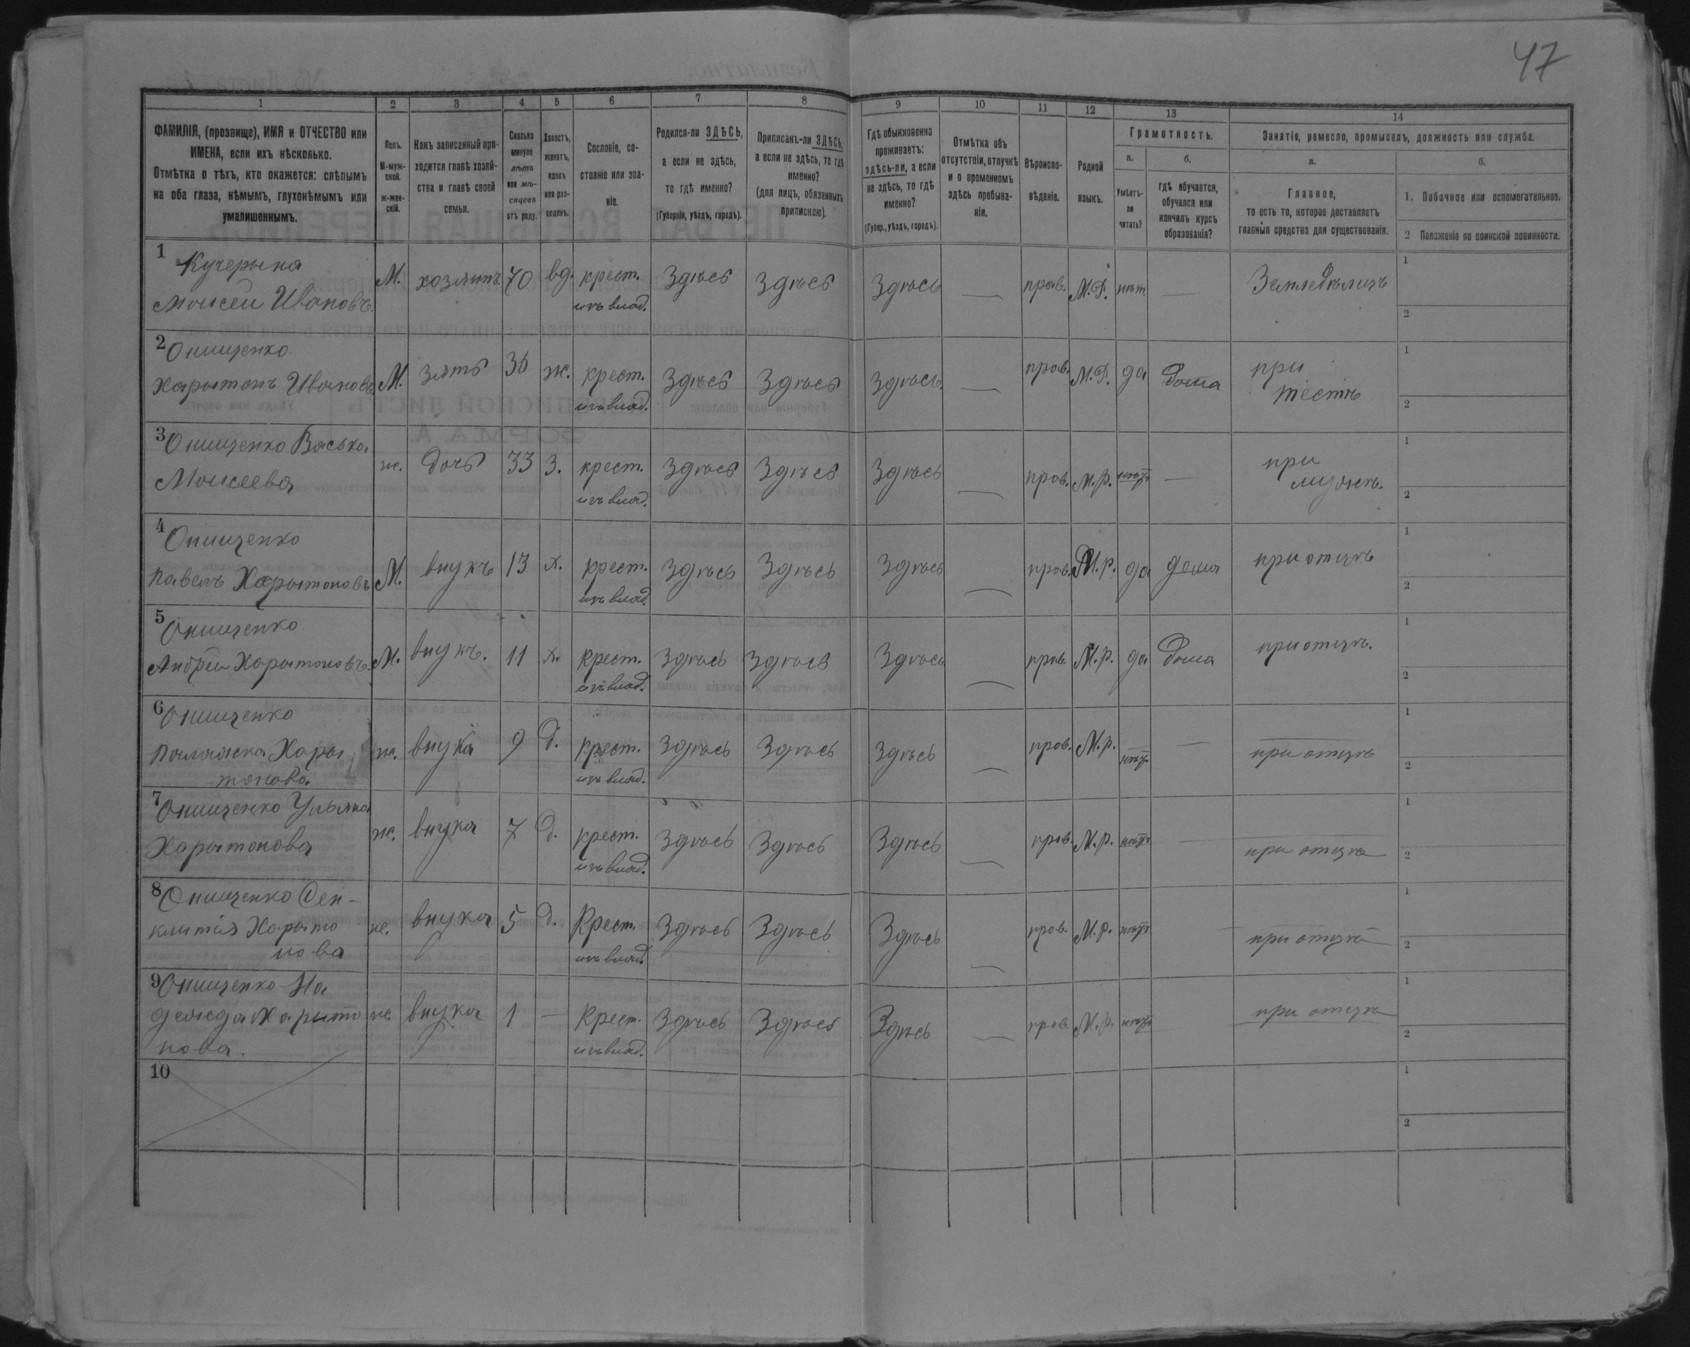 47
1 2 3 4 5 6 7 8 9 10 11 12 13 14
ФАМИЛІЯ, (прозвище), ИМЯ и ОТЧЕСТВО или
ИМЕНА, если ихъ нѣсколько.
Отмѣтка о тѣхъ, кто окажется: слѣпымъ
на оба глаза, нѣмымъ, глухонѣмымъ или
умалишеннымъ.
Полъ.
М-муж-
ской.
ж-жен-
скій.
Какъ записанный при-
ходится главѣ хозяй-
ства и главѣ своей
семьи.
Сколько
минуло
лѣтъ
или мѣ-
сяцевъ
отъ роду.
Холостъ,
женатъ,
вдовъ
или раз-
веденъ.
Сословіе, со-
стояніе или зва-
ніе.
Родился-ли ЗДѢСЬ,
а если не здѣсь,
то гдѣ именно?
(Губернія, уѣздъ, городъ).
Приписанъ-ли ЗДѢСЬ,
а если не здѣсь, то гдѣ
именно?
(для лицъ, обязанныхъ
припискою).
Гдѣ обыкновенно
проживаетъ:
здѣсь-ли, а если
не здѣсь, то гдѣ
именно?
(Губер., уѣздъ, городъ).
Отмѣтка объ
отсутствіи, отлучкѣ
и о временномъ
здѣсь пребыва-
ніи.
Вѣроиспо-
вѣданіе.
Родной
языкъ.
Грамотность.
а.
Умѣетъ-
ли
читать?
б.
гдѣ обучается,
обучался или
кончилъ курсъ
образованія?
Занятіе, ремесло, промыселъ, должность или служба.
а.
Главное,
то есть то, которое доставляетъ
главныя средства для существованія.
б.
1. Побочное или вспомогательное.
2 Положеніе по воинской повинности.
1 Кучерына
Моисей Ивановъ. М. хозяинъ 70 вд. крест. Здѣсь Здѣсь Здѣсь — прав. М.Р. нѣт — Земледѣлецъ 1
изъ влад. 2
2 Онищенко
Харытонъ Ивановъ М. зять 36 ж. крест. Здѣсь Здѣсь Здѣсь — прав. М.Р. да дома при 1
изъ влад. тестѣ 2
3 Онищенко Васька
Моисеева ж. дочь 33 з. крест. Здѣсь Здѣсь Здѣсь — прав. М.р. нѣтъ — при 1
изъ влад. мужѣ. 2
4 Онищенко
Павелъ Харытоновъ М. внукъ 13 х. крест. Здѣсь Здѣсь Здѣсь — прав. М.р. да дома при отцѣ 1
изъ влад. 2
5 Онищенко
Андрей Харытоновъ М. внукъ. 11 х. крест. Здѣсь Здѣсь Здѣсь — прав. М.р. да дома при отцѣ. 1
изъ влад. 2
6 Онищенко
Хары
тонова ж. внука 9 д. крест. Здѣсь Здѣсь Здѣсь — прав. М.р. нѣтъ — при отцѣ 1
изъ влад. 2
7 Онищенко Ульяна
Харытонова ж. внука 7 д. крест. Здѣсь Здѣсь Здѣсь — прав. М.р. нѣтъ — при отцѣ 1
изъ влад. 2
8 Онищенко
Харыто
нова ж. внука 5 д. Крест. Здѣсь Здѣсь Здѣсь — прав. М.р. нѣтъ — при отцѣ 1
изъ влад. 2
9 Онищенко На
дежда Харито
нова. ж. внука 1 — Крест. Здѣсь Здѣсь Здѣсь — прав. М.р. нѣтъ при отцѣ 1
изъ влад. 2
10 1
2